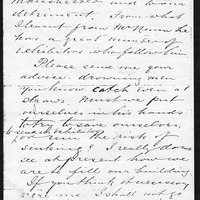 Manchester and
detriment. From what
I learnt from Mr Nunn he
has a great number of
exhibitors who follow him.
Please send me your
advice. drowning men
you know catch even at
straws. Must we put
ourselves in his hands
to try to save ourselves,
or run the risk of
sinking? I really do not
see at present how we
are to fill our building.
If you think it necessary
wire me. I shall not go